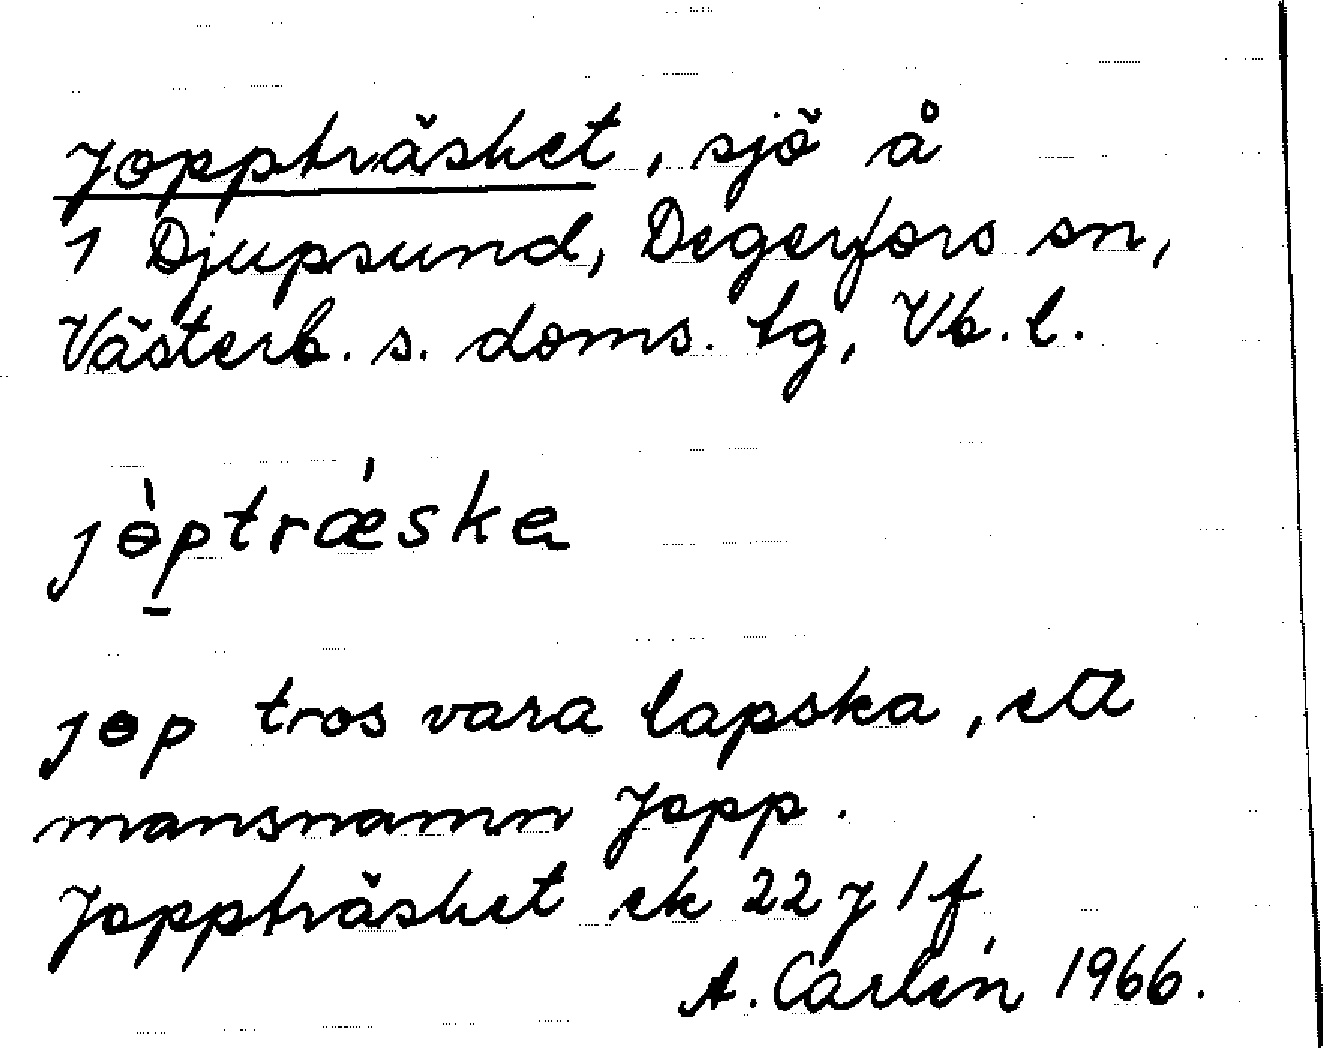 Joppträsket, sjö å
1 Djupsund, Degerfors sn,
Västerb. s. doms. tg, Vb. l.
jɵ̀ptrǽska
jɵp tros vara lapska, ett
mansnamn Jopp.
Joppträsket ek 22 y 1 f
A. Carlén 1966.